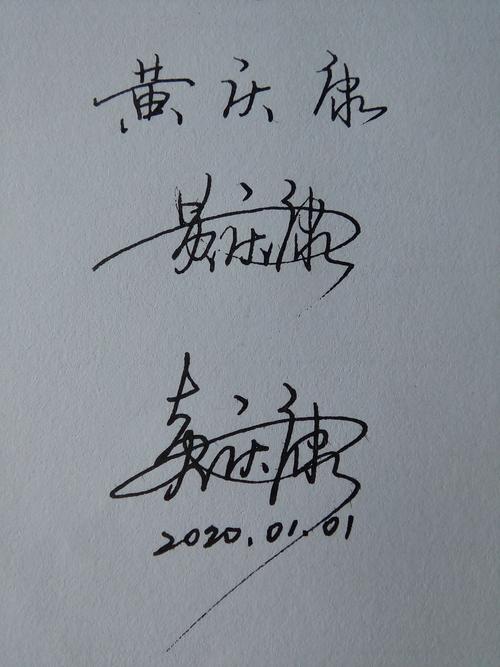 黄庆康
黄庆康
黄庆康
2020.01.01